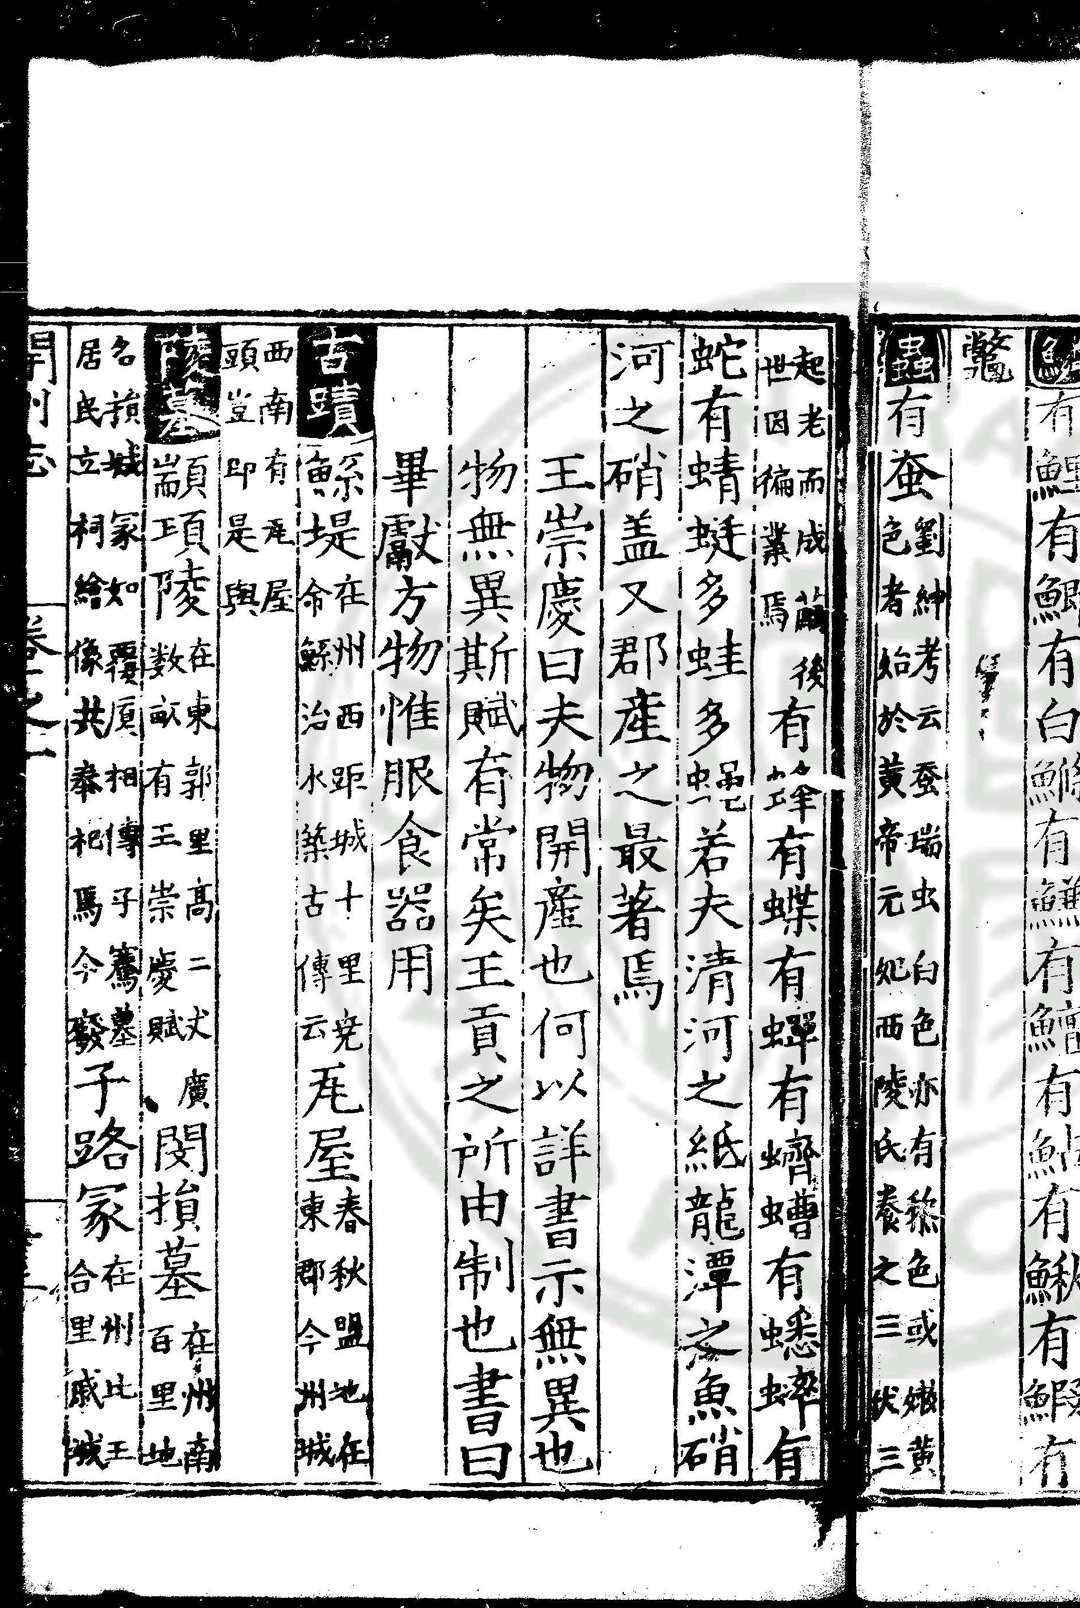 有鯉有鯽有白鰷有鱅有鱣有鮎有鰍有鰕有
鼈
蟲有蚕劉紳考云蚕瑞虫白色亦有黎色或嫩黃
色者始於黃帝元妃西陵氏養之三伏三
起老而成繭後
世因徧業焉有蜂有蝶有蟬有蠐螬有蟋蟀有
蛇有蜻蜓多蛙多蠅若夫清河之紙龍潭之魚硝
河之硝盖又郡產之最著焉
王崇慶曰夫物開產也何以詳書示無異也
物無異斯賦有常矣王貢之所由制也書曰
畢獻方物惟服食器用
古蹟鯀堤在州西距城十里堯
命鯀治水築古傳云瓦屋春秋盟地在
東郡今州城
西南有瓦屋
頭豈即是與
陵墓顓頊陵在東郭里高二丈廣
数畝有王崇慶賦閔損墓在州南
百里地
名損城冢如覆厦相傳子騫墓
居民立祠繪像共奉祀焉今廢子路冢在州北王
合里戚城
開州志 卷之一